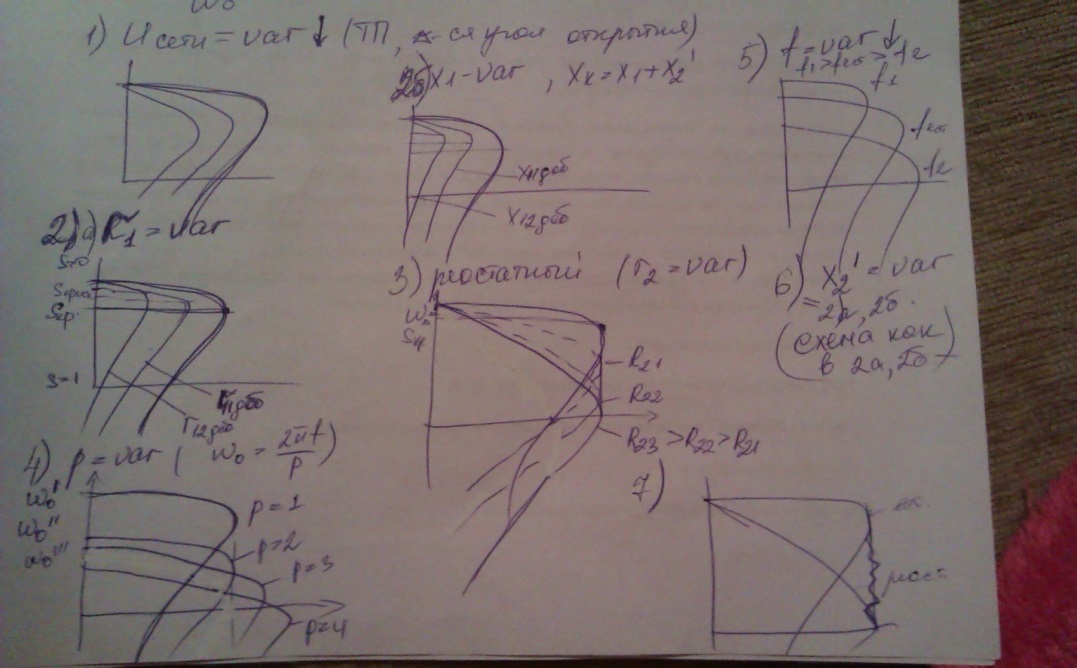 ω₀
1) U сети = var ↓ (ТП, α-ся угол открытия)
2б) X1 - var , Xк = X1 + X2'
5) f = var ↓
f1 > fном > f2
f1
fном
f2
X11доб
X12доб
2) а) R1 = var
S=0
Sкр.
S=1
r11доб
r12доб
3) реостатный (r2 = var)
ω₀
Sкр
R21
R22
R23 > R22 > R21
6) X2' = var
= 2а, 2б.
(схема как
в 2а, 2б)
4) p = var ( ω₀ = 2πf/p )
ω₀'
ω₀''
ω₀'''
p=1
p=2
p=3
p=4
7)
ест.
реост